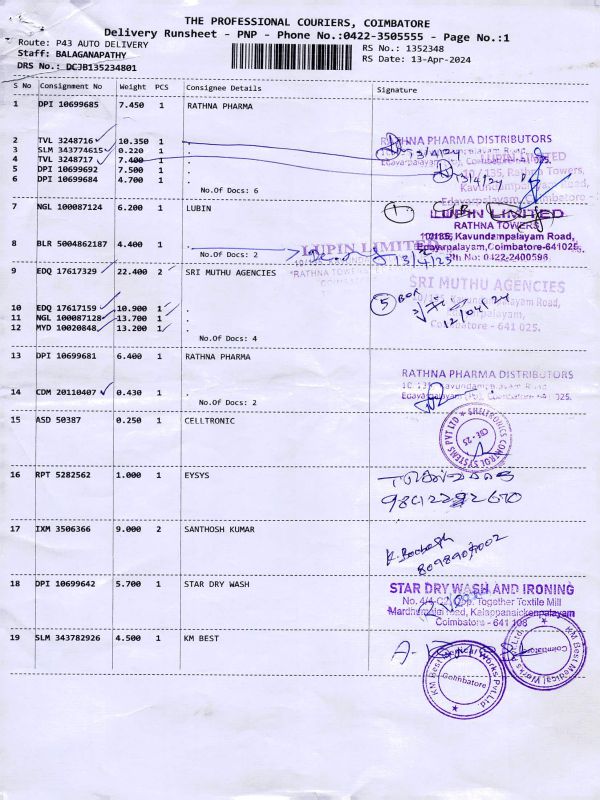 THE PROFESSIONAL COURIERS, COIMBATORE
Delivery Runsheet - PNP - Phone No.:0422-3505555 - Page No.:1
Route: P43 AUTO DELIVERY
RS No.: 1352348
Staff: BALAGANAPATHY
RS Date: 13-Apr-2024
DRS No.: DCJB135234801
S No Consignment No Weight PCS Consignee Details Signature
1 DPI 10699685 7.450 1 RATHNA PHARMA
2 TVL 3248716 10.350 1 .
3 SLM 343774615 0.220 1 .
4 TVL 3248717 7.400 1 .
5 DPI 10699692 7.500 1 .
6 DPI 10699684 4.700 1 .
No.Of Docs: 6
RATHNA PHARMA DISTRIBUTORS
13/4/24
LUPIN LIMITED
RATHNA Towers,
Kavundampalayam Road,
7 NGL 100087124 6.200 1 LUPIN
LUPIN LIMITED
RATHNA TOWERS
10/135, Kavundampalayam Road,
Edayarpalayam, Coimbatore-641025.
Ph No: 0422-2400596
8 BLR 5004862187 4.400 1 .
No.Of Docs: 2
LUPIN LIMITED
13/4/23
9 EDQ 17617329 22.400 2 SRI MUTHU AGENCIES
SRI MUTHU AGENCIES
10 EDQ 17617159 10.900 1 .
11 NGL 100087128 13.700 1 .
12 MYD 10020848 13.200 1 .
No.Of Docs: 4
5 Box
12/04/24
Coimbatore - 641 025.
13 DPI 10699681 6.400 1 RATHNA PHARMA
RATHNA PHARMA DISTRIBUTORS
14 CDM 20110407 0.430 1 .
No.Of Docs: 2
15 ASD 50387 0.250 1 CELLTRONIC
SHELTRONICS CONTROL SYSTEMS PVT LTD
CBE-25
16 RPT 5282562 1.000 1 EYSYS
17 IXM 3506366 9.000 2 SANTHOSH KUMAR
18 DPI 10699642 5.700 1 STAR DRY WASH
STAR DRY WASH AND IRONING
Opp. Together Textile Mill
Road, Kalappanaickenpalayam
Coimbatore - 641 108
19 SLM 343782926 4.500 1 KM BEST
KM Best Medical Works Pvt.Ltd.
Coimbatore
KM Best Medical Works Pvt.Ltd.
Coimbatore